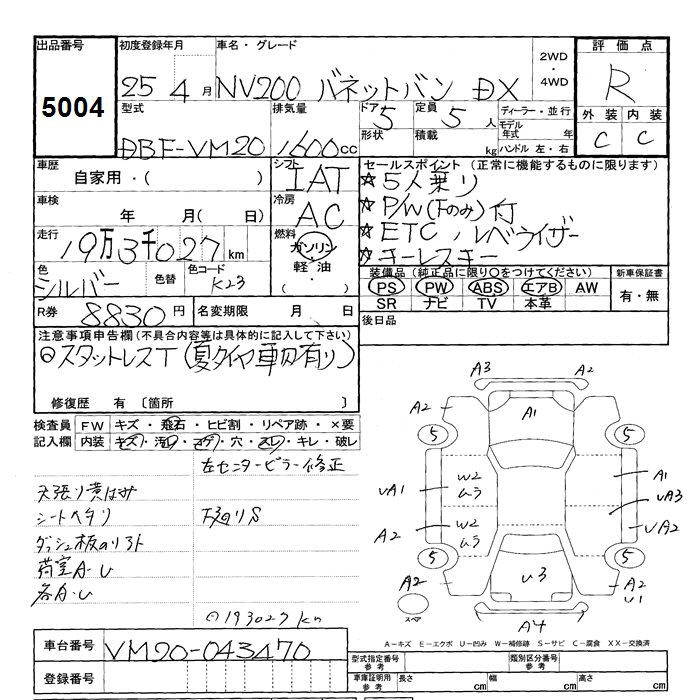 出品番号 初度登録年月 車名・グレード 2WD ・ 4WD 評価点
5004 25 4月 NV200 バネットバン DX R
型式 排気量 ドア 5 定員 5人 ディーラー・並行 外装 内装
DBF-VM20 1600cc 形状 積載 kg モデル年式 年 ハンドル 左・右 C C
車歴 シフト IAT セールスポイント (正常に機能するものに限ります)
自家用・( ) ☆5人乗り
車検 年 月( 日) 冷房 AC ☆P/W(Fのみ)付
走行 19万3千027km 燃料 ガソリン・軽油・( ) ☆ETC レベライザー
☆キーレスキー
色 シルバー 色替 色コード K23 装備品 (純正品に限り○をつけてください) 新車保証書
PS PW ABS エアB AW 有・無
SR ナビ TV 本革
R券 8830円 名変期限 月 日 後日品
注意事項申告欄 (不具合内容等は具体的に記入して下さい)
◎スタットレスT (夏タイヤ車内有り)
修復歴 有 〔箇所 〕
検査員 FW キズ・飛石・ヒビ割・リペア跡・×要
記入欄 内装 キズ・汚れ・コゲ・穴・スレ・キレ・破レ
左センターピラー修正
天張り黄ばみ
シートヘタリ 下廻りS
ダッシュ板のリフト
荷室A・U
各A・U
◎193027km
A3 A2
A2 A1
5 5
UA1 W2 ムラ A1
UA3
A2 W2 ムラ UA2
5 5
A2 U3 A2
U1
スペア A4
A-キズ E-エクボ U-凹み W-補修跡 S-サビ C-腐食 XX-交換済
車台番号 VM20-043470 型式指定番号 参考 類別区分番号 参考
登録番号 車庫証明用 参考 長さ cm 幅 cm 高さ cm